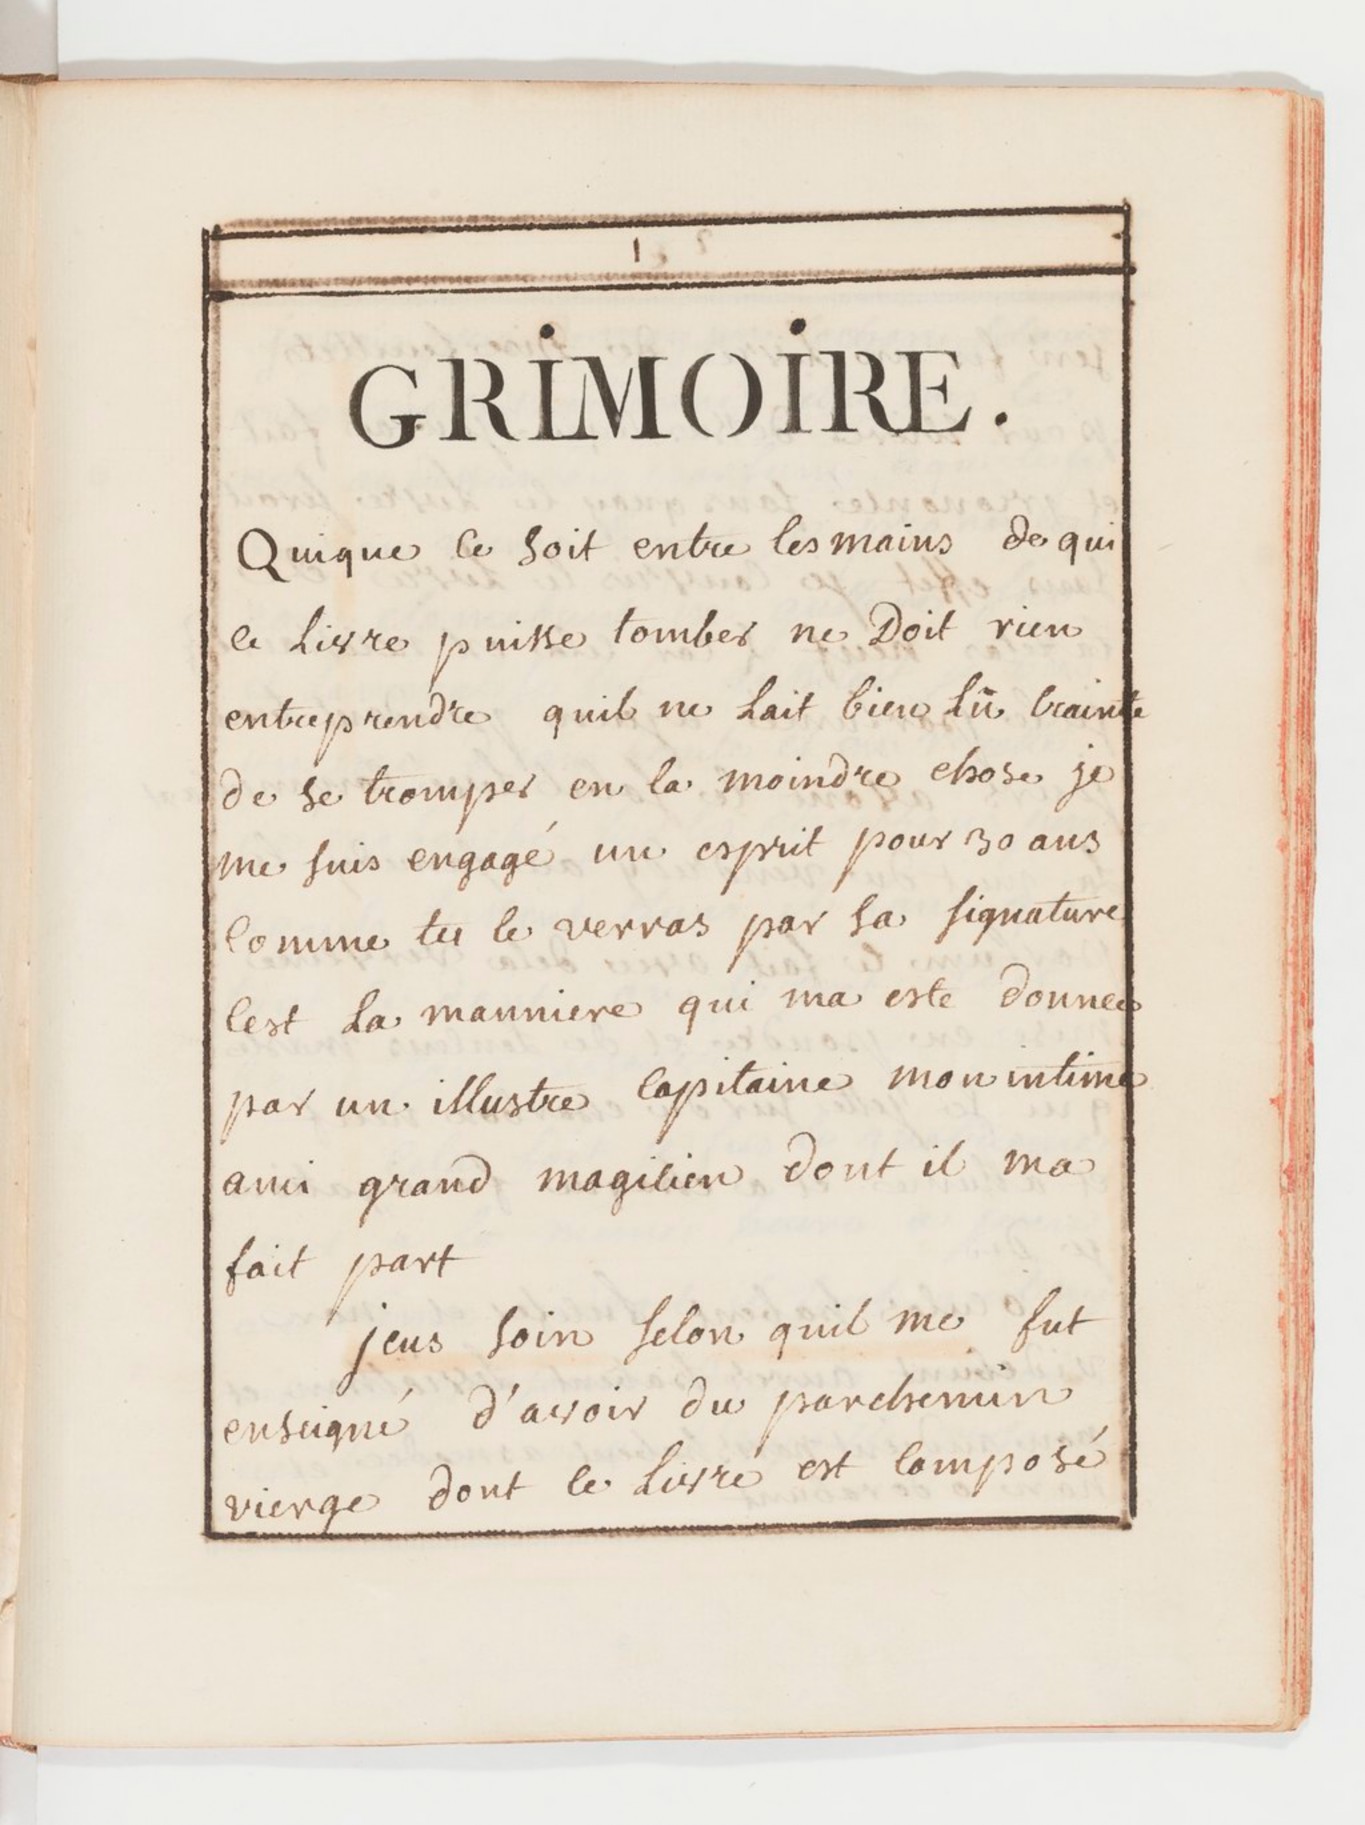 1
GRIMOIRE.
Quique ce soit entre les mains de qui
ce Livre puisse tomber ne Doit rien
entreprendre quil ne Lait bien Lû crainte
de se tromper en la moindre chose je
me suis engagé un esprit pour 30 ans
comme tu le verras par sa signature
cest La manniere qui ma este donnee
par un illustre capitaine mon intime
ami grand magicien dont il ma
fait part
jeus soin selon quil me fut
enseigné d'avoir du parchemin
vierge dont ce Livre est composé